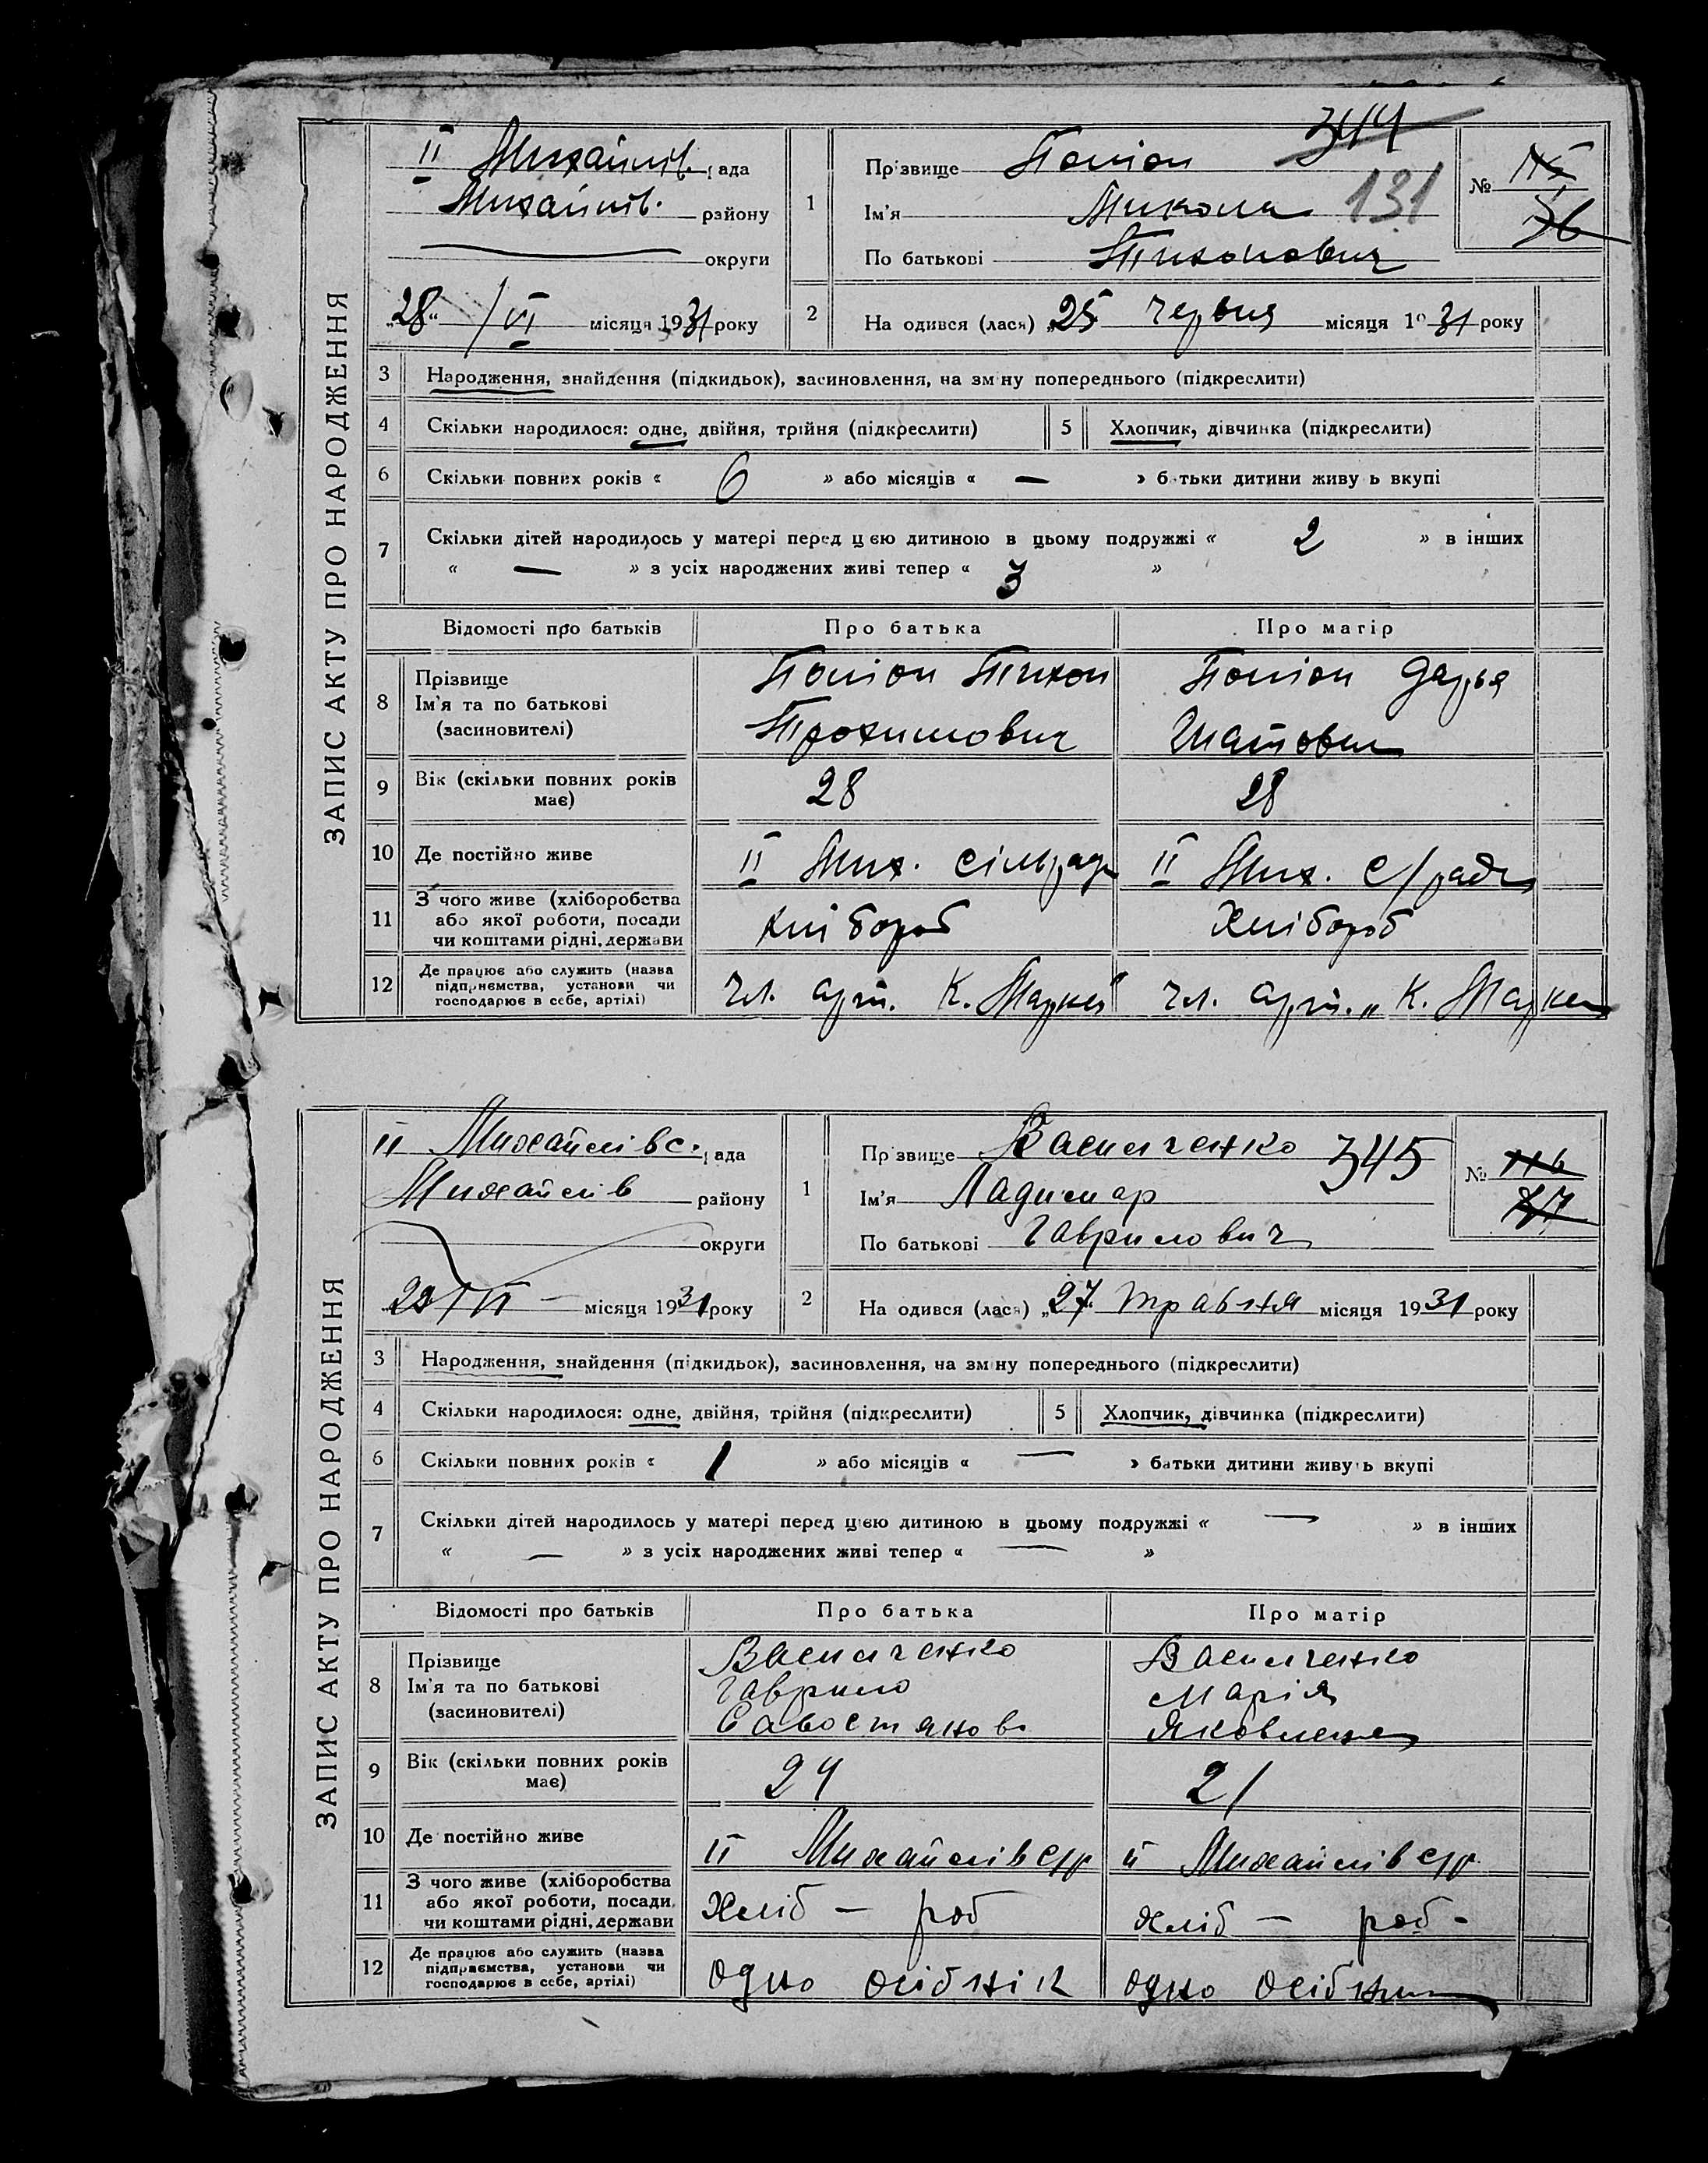 ЗАПИС АКТУ ПРО НАРОДЖЕННЯ
344
II Михайлів. рада
Михайлів. району
округи
"28" /VI місяця 1931 року
1
Прізвище
Ім'я Микола 131
По батькові Тихонович
№
2
На одився (лася) "25 червня місяця 1931 року
3 Народження, знайдення (підкидьок), засиновлення, на зміну попереднього (підкреслити)
4 Скільки народилося: одне, двійня, трійня (підкреслити) 5 Хлопчик, дівчинка (підкреслити)
6 Скільки повних років « 6 » або місяців « — » батьки дитини живуть вкупі
7 Скільки дітей народилось у матері перед цією дитиною в цьому подружжі « 2 » в інших
« — » з усіх народжених живі тепер « 3 »
Відомості про батьків Про батька Про матір
8 Прізвище
Ім'я та по батькові
(засиновителі)
Тихон
Трохимович
Дарья
9 Вік (скільки повних років має) 28 28
10 Де постійно живе II Мих. сільради II Мих. с/ради
11 З чого живе (хліборобства або якої роботи, посади чи коштами рідні, держави хлібороб Хлібороб
12 Де працює або служить (назва підприємства, установи чи господарює в себе, артілі) чл. арт. К. Маркса чл. арт. „К. Маркса
ЗАПИС АКТУ ПРО НАРОДЖЕННЯ
II Михайлівс. рада
Михайлів району
округи
місяця 1931 року
1
Прізвище Васильченко 345
Ім'я Ладимар
По батькові Гаврилович
№ 116
77
2
На одився (лася) „27. травня місяця 1931 року
3 Народження, знайдення (підкидьок), засиновлення, на зміну попереднього (підкреслити)
4 Скільки народилося: одне, двійня, трійня (підкреслити) 5 Хлопчик, дівчинка (підкреслити)
6 Скільки повних років « 1 » або місяців « — » батьки дитини живуть вкупі
7 Скільки дітей народилось у матері перед цією дитиною в цьому подружжі « — » в інших
« — » з усіх народжених живі тепер « — »
Відомості про батьків Про батька Про матір
8 Прізвище
Ім'я та по батькові
(засиновителі)
Васильченко
Гаврило
Савостянов.
Васильченко
Марія
Яковлевна
9 Вік (скільки повних років має) 24 21
10 Де постійно живе II Михайлів с/р II Михайлів с/р
11 З чого живе (хліборобства або якої роботи, посади, чи коштами рідні, держави Хліб — роб хліб — роб -
12 Де працює або служить (назва підприємства, установи чи господарює в себе, артілі) одно осібнік одно осібник